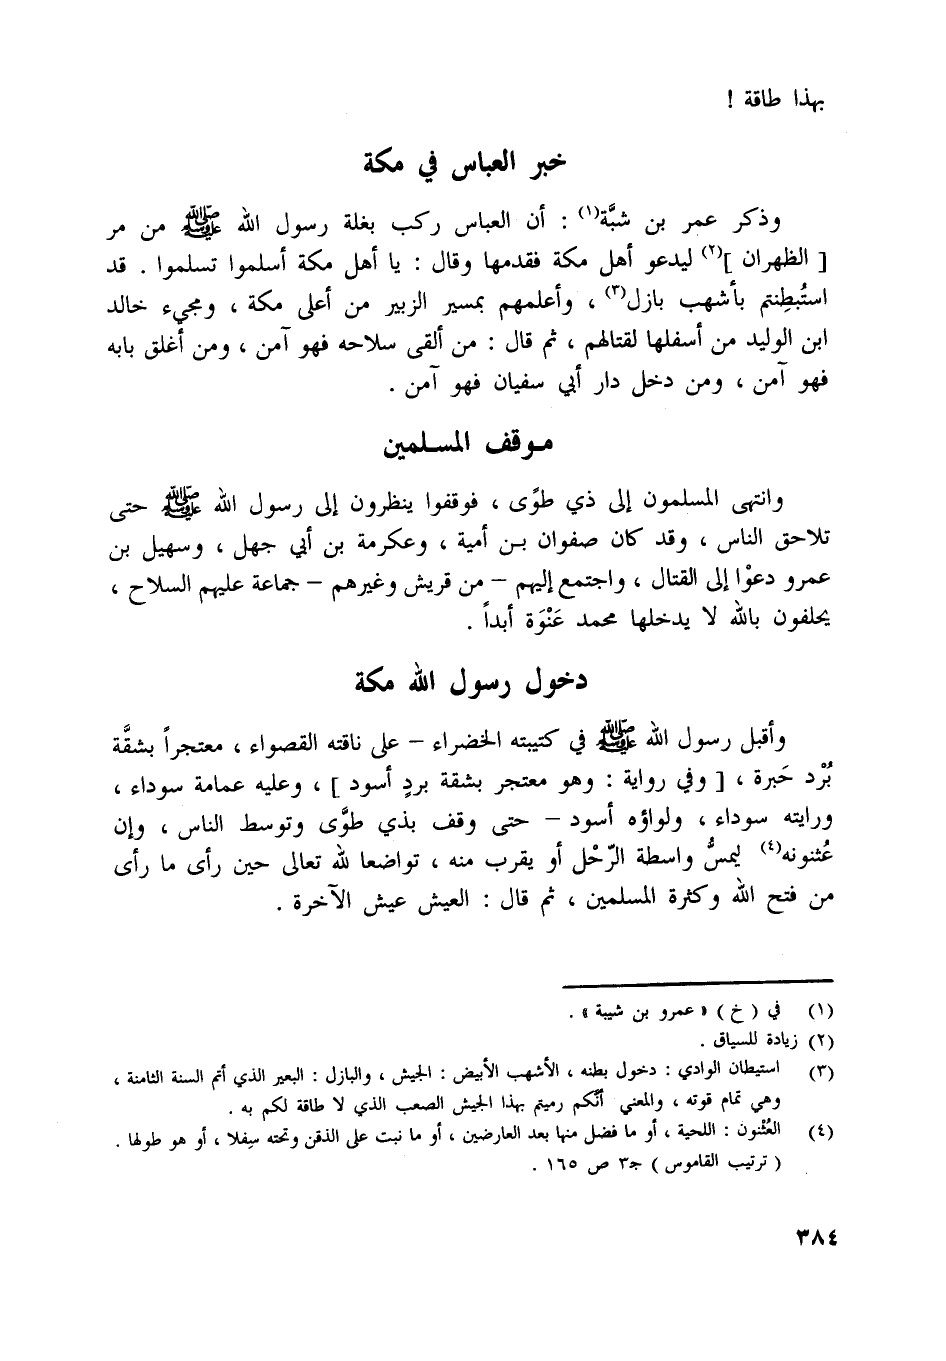 بهذا طاقة !
خبر العباس في مكة
وذكر عمر بن شبَّة(١) : أن العباس ركب بغلة رسول الله ﷺ من مر
[ الظهران ](٢) ليدعو أهل مكة فقدمها وقال : يا أهل مكة أسلموا تسلموا . قد
استُبطِنتم بأشهب بازل(٣) ، وأعلمهم بمسير الزبير من أعلى مكة ، ومجيء خالد
ابن الوليد من أسفلها لقتالهم ، ثم قال : من ألقى سلاحه فهو آمن ، ومن أغلق بابه
فهو آمن ، ومن دخل دار أبي سفيان فهو آمن .
موقف المسلمين
وانتهى المسلمون إلى ذي طوًى ، فوقفوا ينظرون إلى رسول الله ﷺ حتى
تلاحق الناس ، وقد كان صفوان بن أمية ، وعكرمة بن أبي جهل ، وسهيل بن
عمرو دعوْا إلى القتال ، واجتمع إليهم – من قريش وغيرهم – جماعة عليهم السلاح ،
يحلفون بالله لا يدخلها محمد عَنْوَة أبداً .
دخول رسول الله مكة
وأقبل رسول الله ﷺ في كتيبته الخضراء – على ناقته القصواء ، معتجراً بشقَّة
بُرْد حَبرة ، [ وفي رواية : وهو معتجر بشقة بردٍ أسود ] ، وعليه عمامة سوداء ،
ورايته سوداء ، ولواؤه أسود – حتى وقف بذي طوًى وتوسط الناس ، وإن
عُثنونه(٤) ليمسُّ واسطة الرّحْل أو يقرب منه ، تواضعا لله تعالى حين رأى ما رأى
من فتح الله وكثرة المسلمين ، ثم قال : العيش عيش الآخرة .
(١) في ( خ ) « عمرو بن شيبة » .
(٢) زيادة للسياق .
(٣) استيطان الوادي : دخول بطنه ، الأشهب الأبيض : الجيش ، والبازل : البعير الذي أتم السنة الثامنة ،
وهي تمام قوته ، والمعني أنَّكم رميتم بهذا الجيش الصعب الذي لا طاقة لكم به .
(٤) العُثْنون : اللحية ، أو ما فضل منها بعد العارضين ، أو ما نبت على الذقن وتحته سِفلا ، أو هو طولها .
( ترتيب القاموس ) جـ٣ ص ١٦٥ .
٣٨٤